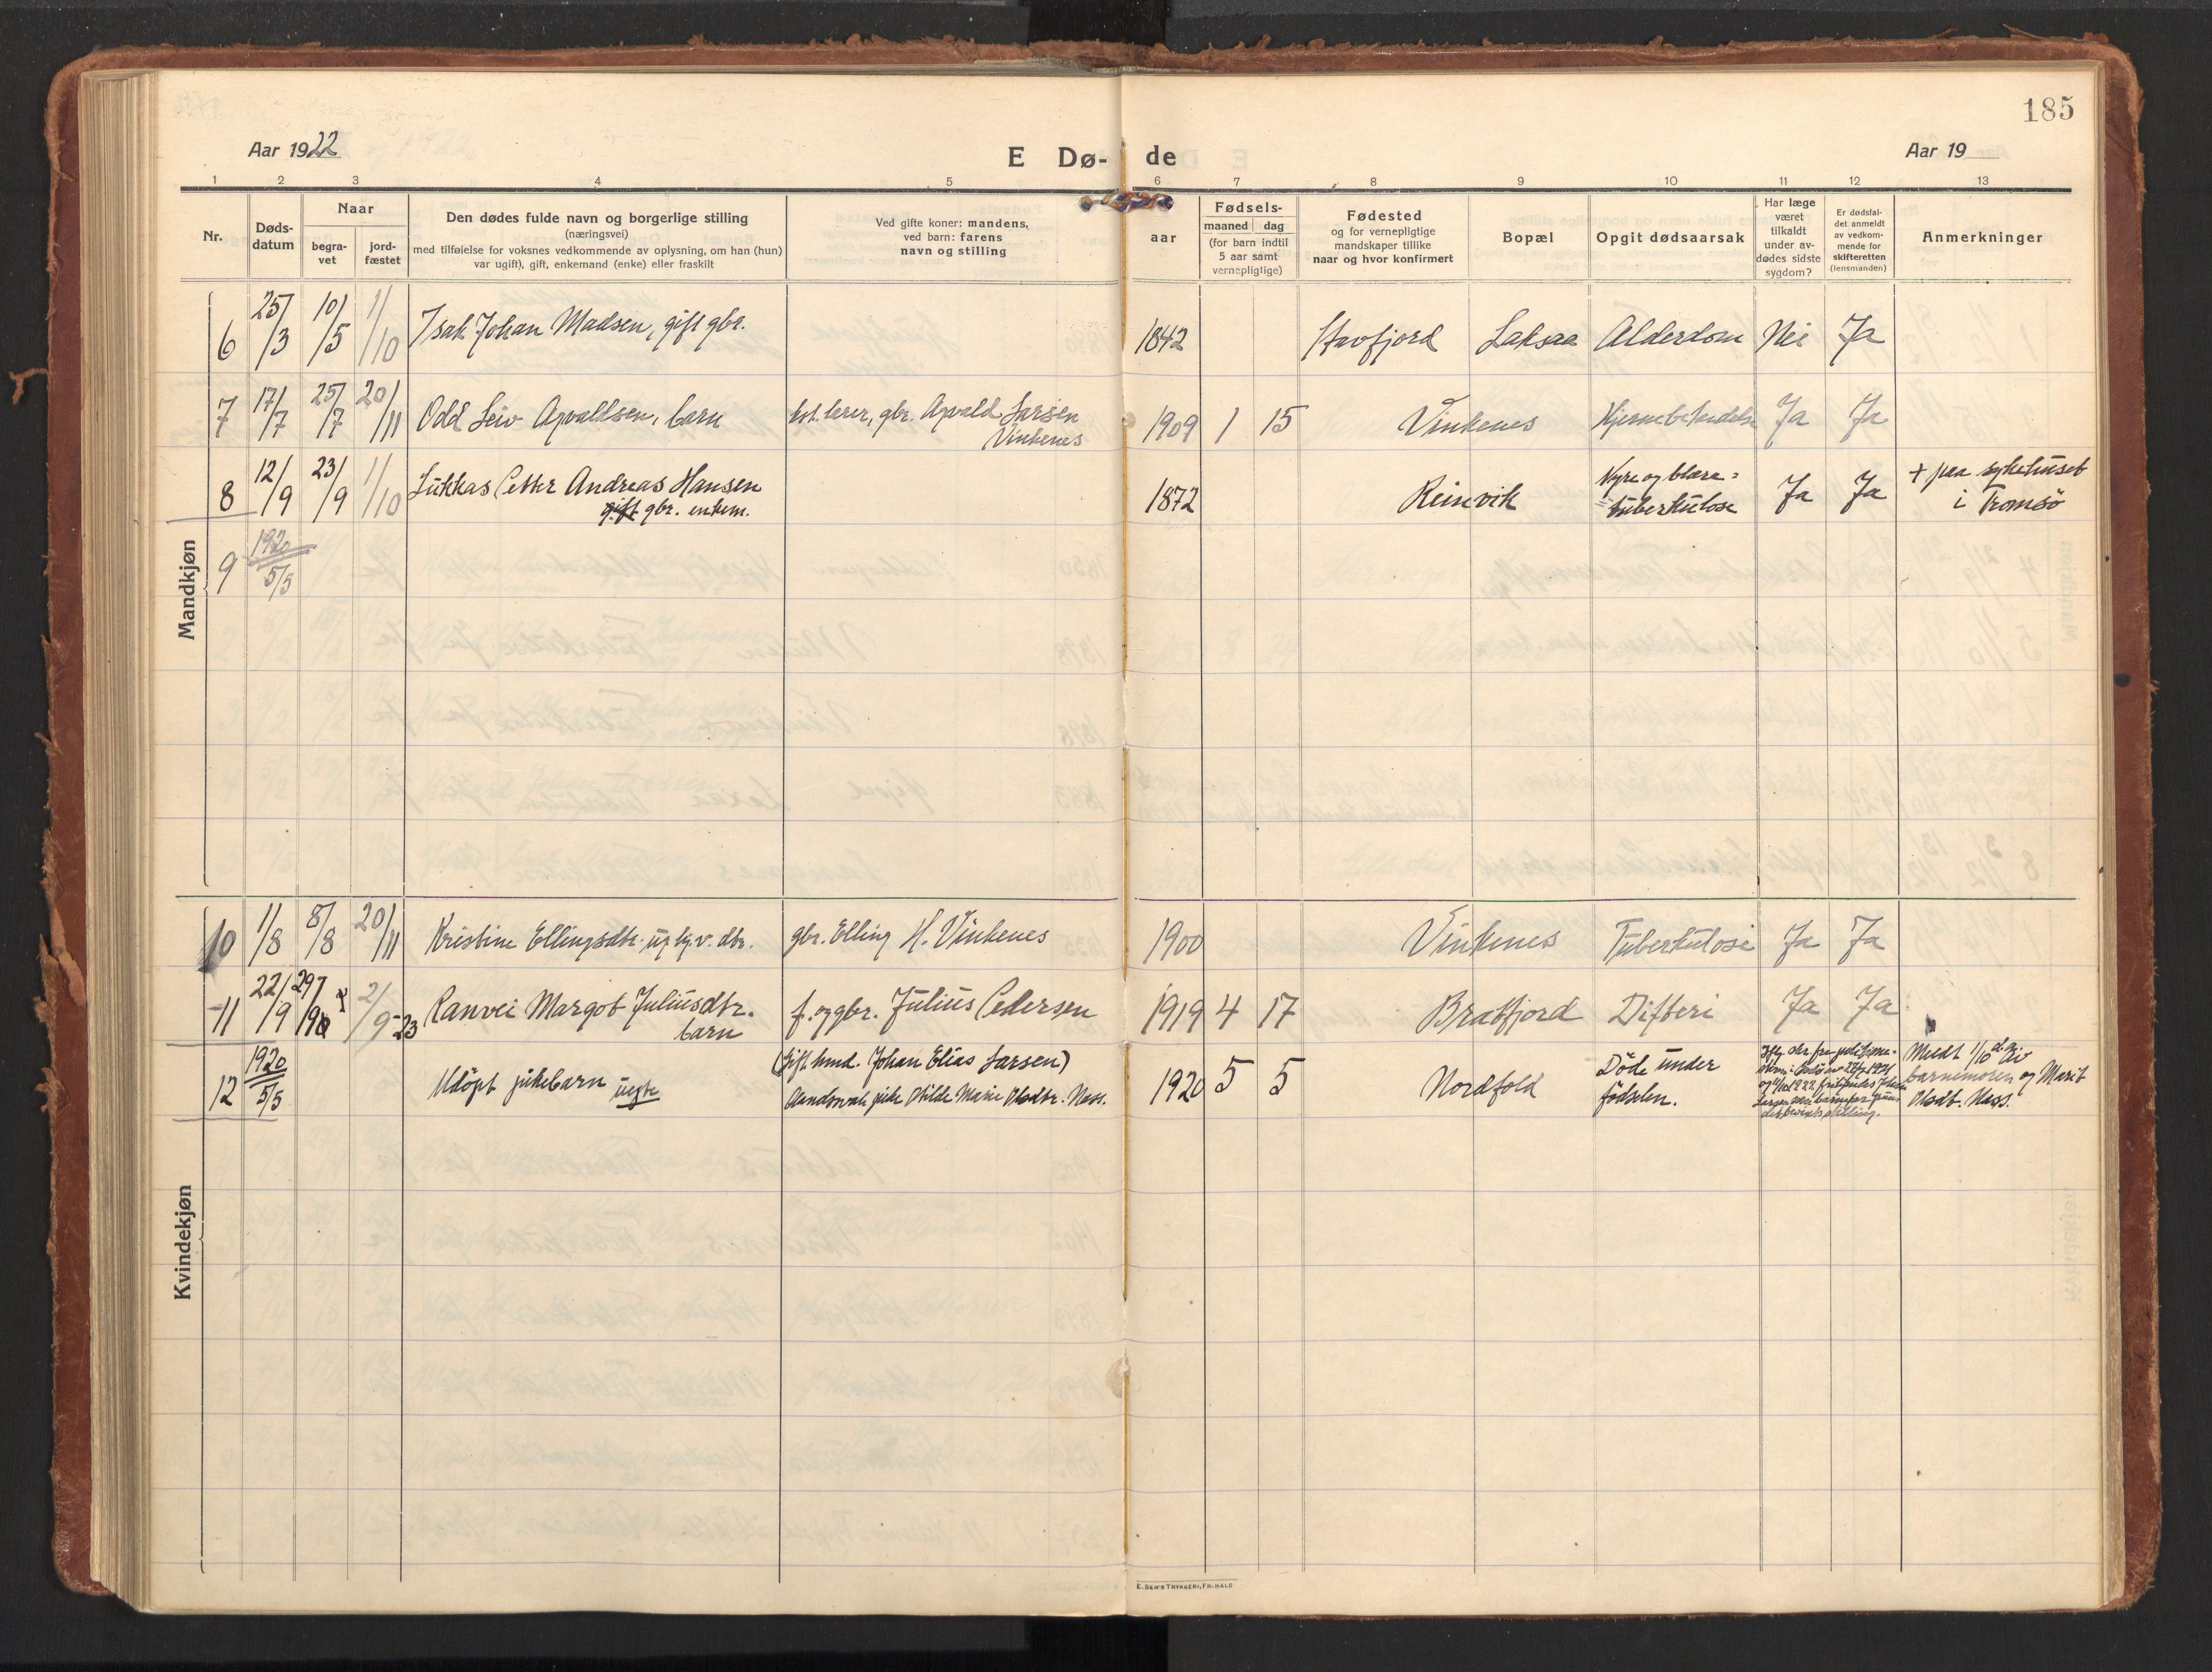 185
Aar 1922
E Dø-
de
Aar 19
1 2 3 4 5 6 7 8 9 10 11 12 13
Nr.
Døds-
datum
Naar
begra-
vet
jord-
fæstet
Den dødes fulde navn og borgerlige stilling
(næringsvei)
med tilføielse for voksnes vedkommende av oplysning, om han (hun)
var ugift), gift, enkemand (enke) eller fraskilt
Ved gifte koner: mandens,
ved barn: farens
navn og stilling
aar
Fødsels-
maaned dag
(for barn indtil
5 aar samt
vernepligtige)
Fødested
og for vernepligtige
mandskaper tillike
naar og hvor konfirmert
Bopæl
Opgit dødsaarsak
Har læge
været
tilkaldt
under av-
dødes sidste
sygdom?
Er dødsfal-
det anmeldt
av vedkom-
mende for
skifteretten
(lensmanden)
Anmerkninger
Mandkjøn
6 25/3 10/5 1/10 Isak Johan Madsen, gift gbr. 1842 Stavfjord Laksaa Alderdom Nei Ja
7 17/7 25/7 20/11 Odd Leiv Asvaldsen, barn lærer, gbr. Asvald Larsen
Vinkenes
1909 1 15 Vinkenes Ja Ja
8 12/9 23/9 1/10 Lukkas Petter Andreas Hansen
gift gbr. enkem.
1872 Reinvik Nyre og blære=
tuberkulose
Ja Ja + paa sykehuset
i Tromsø
9 1920
5/5
10 1/8 8/8 20/11 Kristine Ellingsdtr. dtr. gbr. Elling H. Vinkenes 1900 Vinkenes Tuberkulose Ja Ja
11 22/9 29/9 2/9-23 Ranvei Margot Juliusdtr.
barn
f. og gbr. Julius Pedersen 1919 4 17 Bratfjord Difteri Ja Ja
12 1920
5/5
Udöpt pikebarn uegte
(Gift Johan Elias Larsen)
pike Hilde Marie Olsdtr. Næss.
1920 5 5 Nordfold Döde under
födselen.
Meldt 1/10 d.a. av
barnemoren og Marit
Olsdt. Næss.
Kvindekjøn
E. SEM'S TRYKKERI, FR.HALD